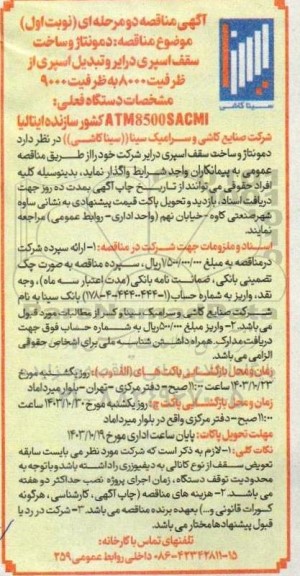 آگهی مناقصه دو مرحله ای (نوبت اول)
موضوع مناقصه: دمونتاژ و ساخت
سقف اسپری درایر و تبدیل اسپری از
ظرفیت ۸۰۰۰ به ظرفیت ۹۰۰۰
مشخصات دستگاه فعلی:
ATM8500SACMI کشور سازنده ایتالیا
سینا کاشی
شرکت صنایع کاشی و سرامیک سینا ((سینا کاشی)) در نظر دارد
دمونتاژ و ساخت سقف اسپری درایر شرکت خود را از طریق مناقصه
عمومی به پیمانکاران واجد شرایط واگذار نماید، بدینوسیله کلیه
افراد حقوقی می توانند از تاریخ چاپ آگهی بمدت ده روز جهت
دریافت اسناد، بازدید و تحویل پاکت قیمت پیشنهادی به نشانی ساوه
شهرصنعتی کاوه -خیابان نهم (واحد اداری- روابط عمومی) مراجعه
نمایند.
اسناد و ملزومات جهت شرکت در مناقصه: ۱- ارائه سپرده شرکت
در مناقصه به مبلغ ۱/۵۰۰/۰۰۰/۰۰۰ ریال، سپرده مناقصه به صورت چک
تضمینی بانکی، ضمانت نامه بانکی (مدت اعتبار سه ماه)، وجه
نقد، واریز به شماره حساب بانک سینا به نام
شرکت صنایع کاشی و سرامیک سینا و کسر از مطالبات مورد قبول
می باشد. ۲- واریز مبلغ ۵۰۰/۰۰۰ ریال به شماره حساب فوق جهت
دریافت مدارک. همراه داشتن شناسه ملی برای اشخاص حقوقی
الزامی می باشد.
زمان و محل بازگشایی پاکت های (الف و ب): روز یکشنبه مورخ
۱۴۰۳/۱۰/۲۳ ساعت ۱۱:۰۰ صبح- دفتر مرکزی - تهران - بلوار میرداماد
زمان و محل بازگشایی پاکت ج: روز یکشنبه مورخ ۱۴۰۳/۱۰/۳۰ ساعت
۱۱:۰۰ صبح- دفتر مرکزی واقع در بلوار میرداماد
مهلت تحویل پاکات: پایان ساعت اداری مورخ ۱۴۰۳/۱۰/۱۹
نکات کلی: ۱- لازم به ذکر است که شرکت مورد نظر می بایست سابقه
تعویض سقف از نوع کانالی به دیفیوزری را داشته باشد و با توجه به
محدودیت توقف دستگاه، زمان اجرای پروژه نصب حداکثر دو هفته
می باشد. ۲- هزینه های مناقصه (چاپ آگهی، کارشناسی، هرگونه
کسورات قانونی و...) بعهده برنده مناقصه می باشد. ۳- شرکت در رد یا
قبول پیشنهادها مختار می باشد.
تلفنهای تماس با کارخانه:
۰۸۶-۴۲۳۴۲۸۱۱-۱۵ داخلی روابط عمومی ۲۵۹